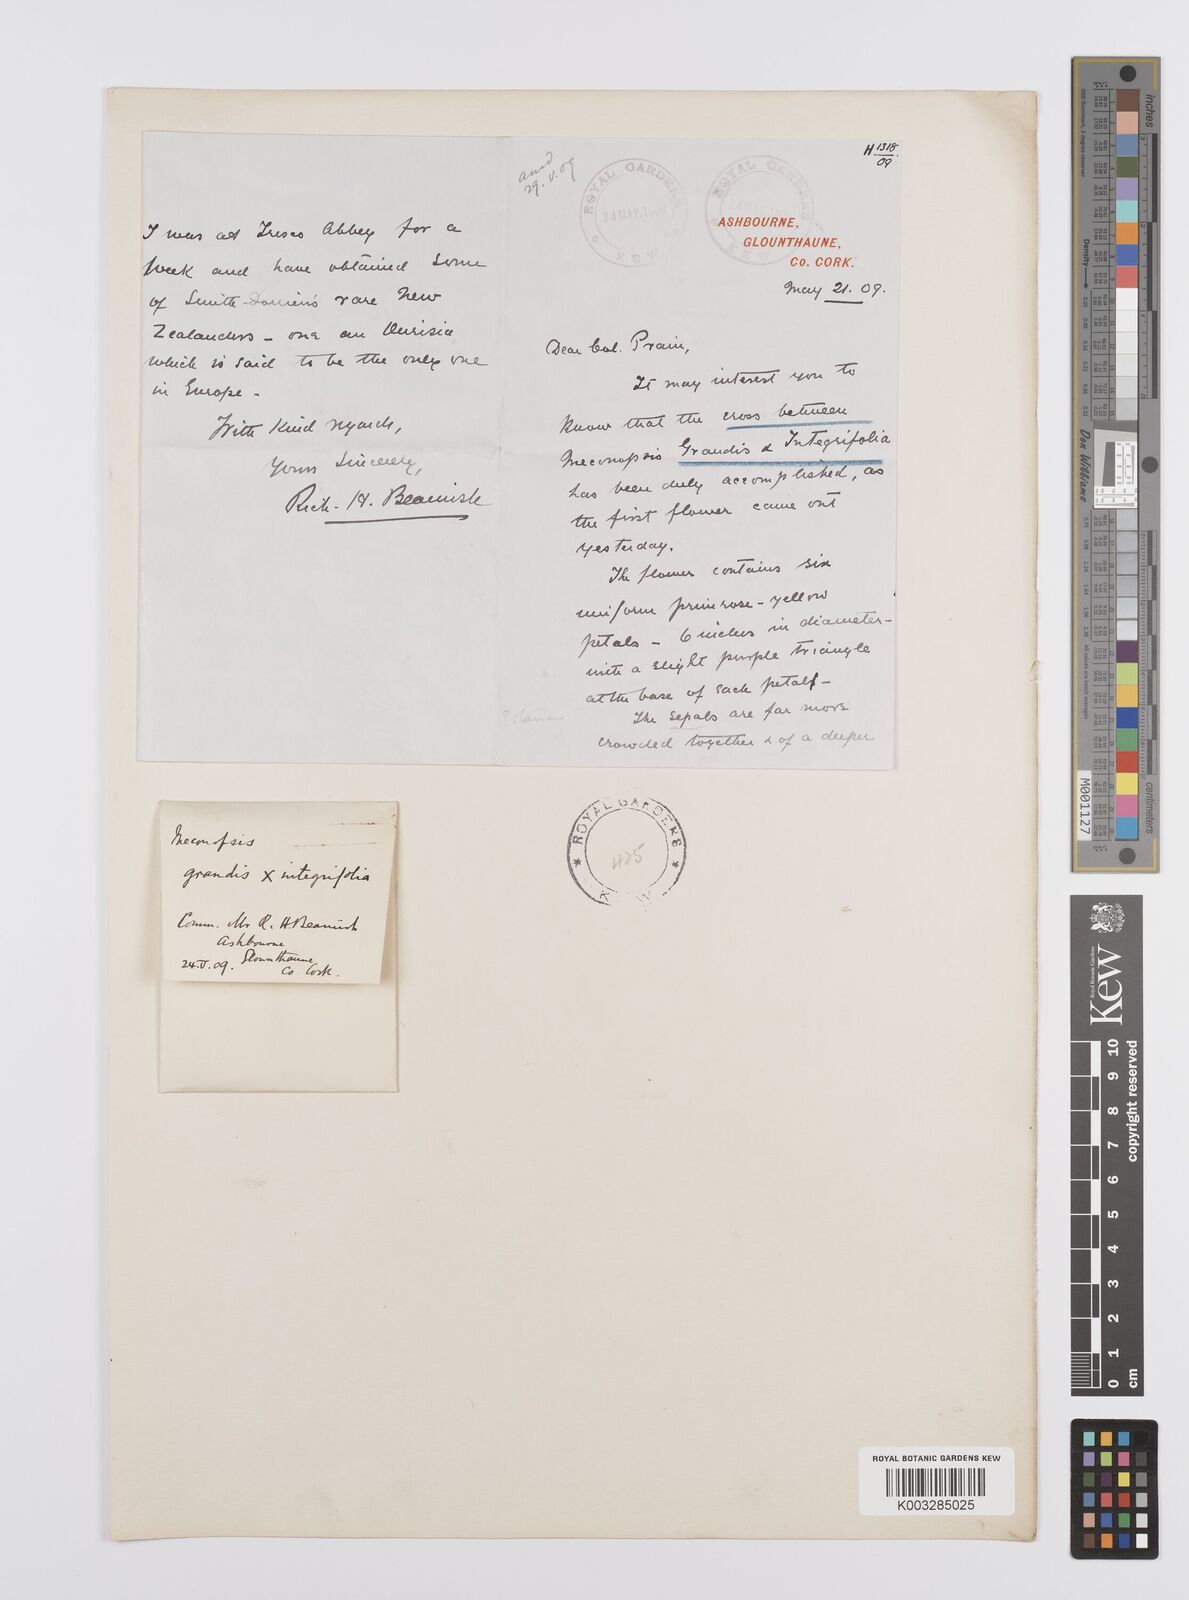 H 1318/09
ansd
29.V.09
ROYAL GARDENS
24 MAY. 1909
KEW
ROYAL GARDENS
KEW
ASHBOURNE,
GLOUNTHAUNE,
Co. CORK.
May 21. 09.
Dear Col. Prain,
It may interest you to
know that the cross between
Meconopsis Grandis & Integrifolia
has been duly accomplished, as
the first flower came out
yesterday.
The flower contains six
uniform primrose-yellow
petals - 6 inches in diameter -
with a slight purple triangle
at the base of each petal -
? stamens
The sepals are far more
crowded together & of a deeper
I was at Tresco Abbey for a
week and have obtained some
of Smith-Dorrien's rare New
Zealanders - one an Ourisia
which is said to be the only one
in Europe -
With kind regards,
Yours Sincerely,
Rich. H. Beamish
Meconopsis
grandis X integrifolia
Comm. Mr R. H. Beamish
Ashbourne
Glounthaune
24.V.09. Co. Cork.
ROYAL GARDENS
425
KEW
ROYAL BOTANIC GARDENS KEW
K003285025
inches
Density
Don Williams
M001127
centimeters
Royal Botanic Gardens
Kew
0 1 2 3 4 5 6 7 8 9 10
cm
copyright reserved